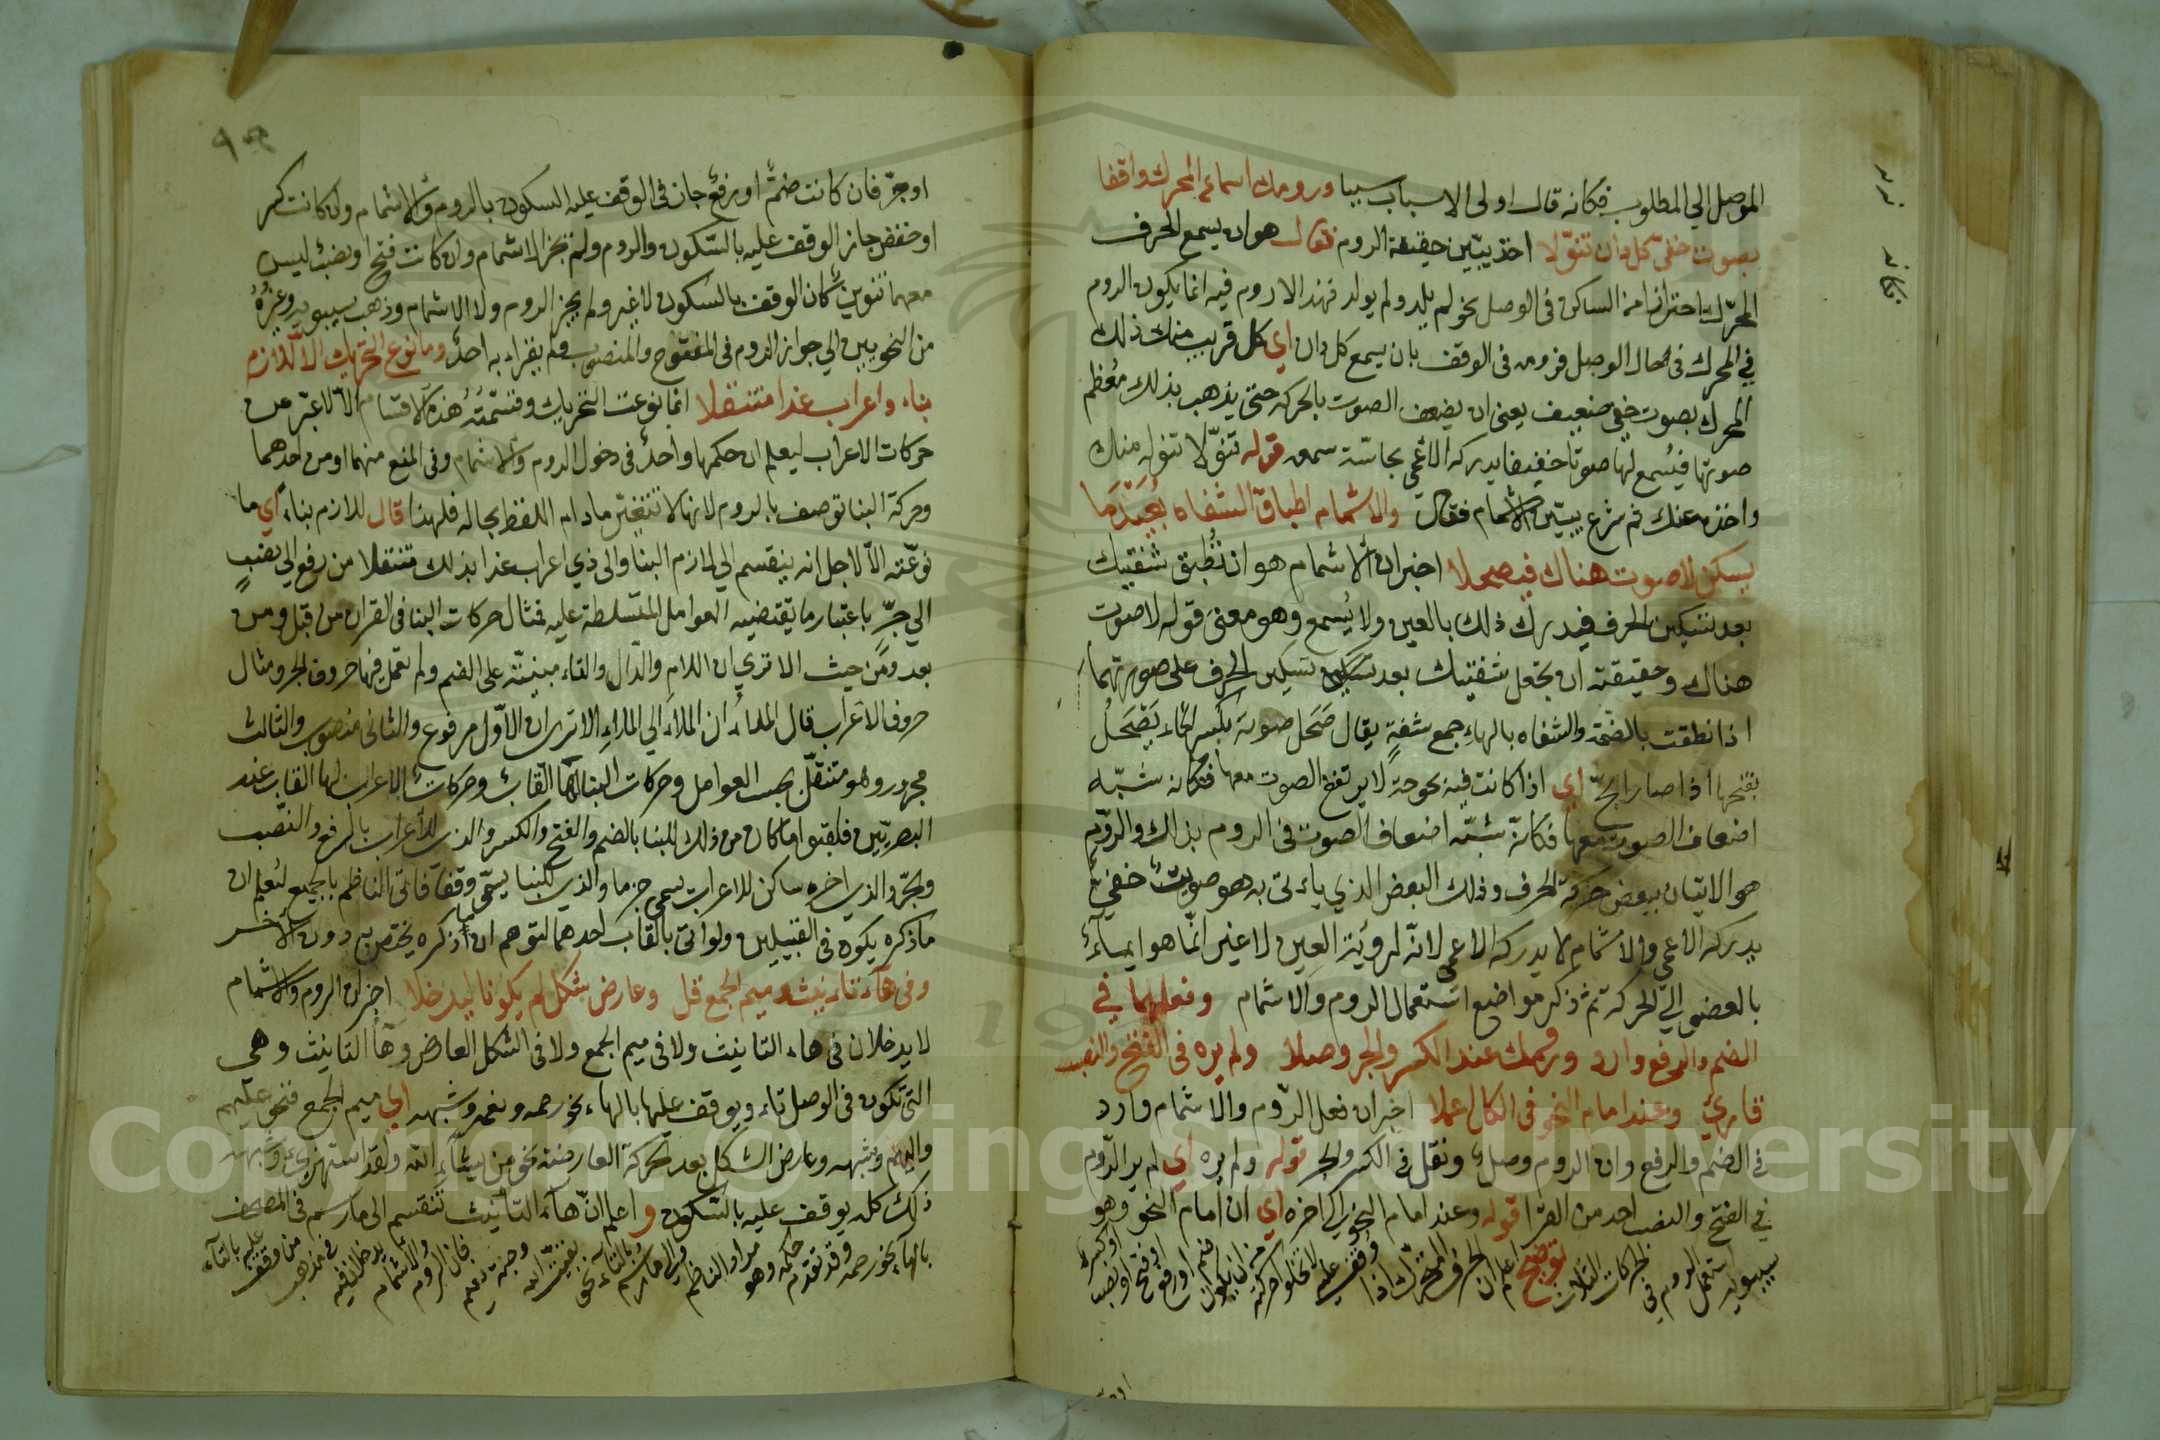 الموصل الي المطلوب فكانه قال اولى الاسباب سببا ورومك اسماع المحرك واقفا
بصوت خفي كل دان تنوّلا اخذ يبيّن حقيقة الروم فقال هو ان يسمع الحرف
المحرّك احترازا من الساكن في الوصل نحو لم يلد ولم يولد فهذا لا روم فيه انما يكون الروم
في المحرك في حال الوصل فرومه في الوقف بان يسمع كل دان اي كل قريب منك ذلك
المحرك بصوت خفي ضعيف يعني ان يضعف الصوت بالحركة حتى يذهب بذلك معظم
صوتها فيُسمع لها صوتا خفيفا يدركه الاعمى بحاسّة سمعه قوله تنوّلا تنوله منك
واخذه عنك ثم شرع يبيّن الاشمام فقال والاشمام اطباق الشفاه بُعَيْدَ ما
يسكن لا صوت هناك فيصحلا اخبر ان الاشمام هو ان تُطبق شفتيك
بعد تسكين الحرف فيدرك ذلك بالعين ولا يُسمع وهو معنى قوله لا صوت
هناك وحقيقته ان تجعل شفتيك بعد تسكين الحرف على صورتهما
اذا نطقت بالضمة والشفاه بالهاء جمع شفةٍ يقال صَحَل صوته بكسر الحاء يَصْحَلُ
بفتحها اذا صار ابحّ اي اذا كانت فيه بحوحة لا يرتفع الصوت معها فكانه شبّه
اضعاف الصوت معها فكانّه شبّه اضعاف الصوت في الروم بذلك والرّوم
هو الاتيان ببعض حركة الحرف وذلك البعض الذي يأتى به هو صويت خفيّ
يدركه الاعمى والاشمام لا يدركه الاعمى لانّه لرؤية العين لا غير انّما هو ايماءٌ
بالعضو الي الحركة ثم ذكر مواضع استعمال الروم والاشمام وفعلهما في
الضم والرفع وارد ورومك عند الكسر والجر وصلا ولم يره في الفتح والنصب
قارئ وعند امام النحو في الكل اعملا اخبر ان فعل الرّوم والاشمام وارد
في الضم والرفع وان الروم وصل ونقل في الكسر والجر قوله ولم يره اي لم ير الرّوم
في الفتح والنصب احد من القرّا قوله وعند امام النحو الي اخره اي ان امام النحو وهو
سيبويه استعمل الروم في الحركات الثلاث توضيح اعلم ان الحرف المتحرّك اذا وُقف عليه لا تخلو حركته من ان يكون ضم او رفع او فتح او نصب او كسر
او جرّ فان كانت ضمّ او رفع جاز في الوقف عليه السكون بالروم والاشمام وان كانت كسر
او خفض جاز الوقف عليه بالسّكون والروم ولم يجز الاشمام وان كانت فتح او نصب ليس
معهما تنوين كان الوقف بالسكون لا غير ولم يجز الروم ولا الاشمام وذهب سيبويه وغيرُهُ
من النحويين الي جواز الروم في المفتوح والمنصوب فلم يقرا به احد وما نوع التحريك الا للازم
بناء واعراب غدا متنقلا انما نوعت التحريك وقسّمتُهُ هذه الاقسام الا لاعبّر عن
حركات الاعراب ليعلم ان حكمها واحدٌ في دخول الروم والاشمام وفي المنع منهما او من احدهما
وحركة البنا توصف بالروم لانها لا تتغيّر ما دام اللفظ بحاله فلهذا قال للازم بناء اي ما
نوّعته الّا لاجل انه ينقسم الي لازم البنا والى ذي اعراب غدا بذلك متنقلا من رفع الي نصب
الي جرّ باعتبار ما يقتضيه العوامل المتسلطة عليه فمثال حركات البنا في القران من قبل ومن
بعد ومن حيث الا تري ان اللام والدّال والثاء مبنيّة على الضم ولم تعمل فيها حروف الجر ومثال
حروف الاعراب قال الملأُ ان الملأَ الي الملأِ الا ترى ان الاوّل مرفوع والثاني منصوب والثالث
مجرور وهو متنقّل بحسب العوامل وحركات البنا لها القابٌ وحركات الاعراب لها القاب عند
البصريّين فلقبوا ما كان من ذلك للبنا بالضم والفتح والكسر والذي للاعراب بالرفع والنّصب
والجرّ والذي اخره ساكن للاعراب يسمى جزما والذي للبنا يسمّى وقفا فاتى الناظم بالجميع ليُعلم ان
ما ذكره يكون في القبيلين ولو اتى بالقاب احدهما لتوهم ان ما ذكره يختص به دون الاخر
وفي هآء تانيث وميم الجمع قل وعارض شكل لم يكونا ليدخلا اخبر ان الروم والاشمام
لا يدخلان في هاء التانيث ولا في ميم الجمع ولا في الشكل العارض وهآ التانيث وهي
التي تكون في الوصل تاء ويوقف عليها بالهاء نحو رحمه ونعمه وشبهه اي ميم الجمع فنحو عليهم
واليهم وشبهه وعارض الشكل بعد حركة العارضة نحو من يشآء الله ولقد استهزئ وشبهه
ذلك كله يوقف عليه بالسّكون واعلم انّ هآء التانيث تنقسم الى ما رسم في المصحف
بالهآء نحو رحمه وقد تقدم حكمه وهو مراد الناظم والي ما رُسم بالتاء نحو بقيت الله وجنت نعيم فان الروم والاشمام يدخلان فيه في مذهب من وقف عليه بالتآء